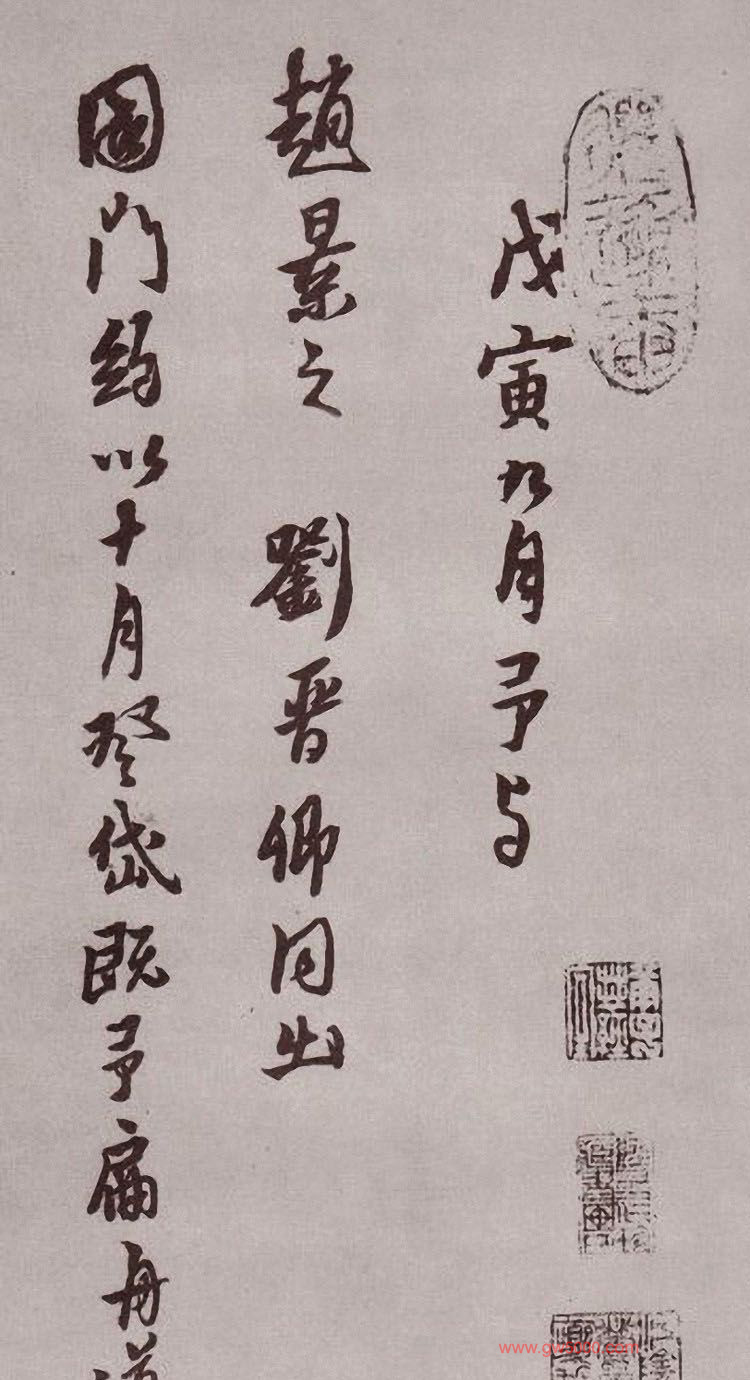 戊寅九月予与
趙景之 劉晋卿同出
國門約以十月登岱既予扁舟道
www.gw8860.com